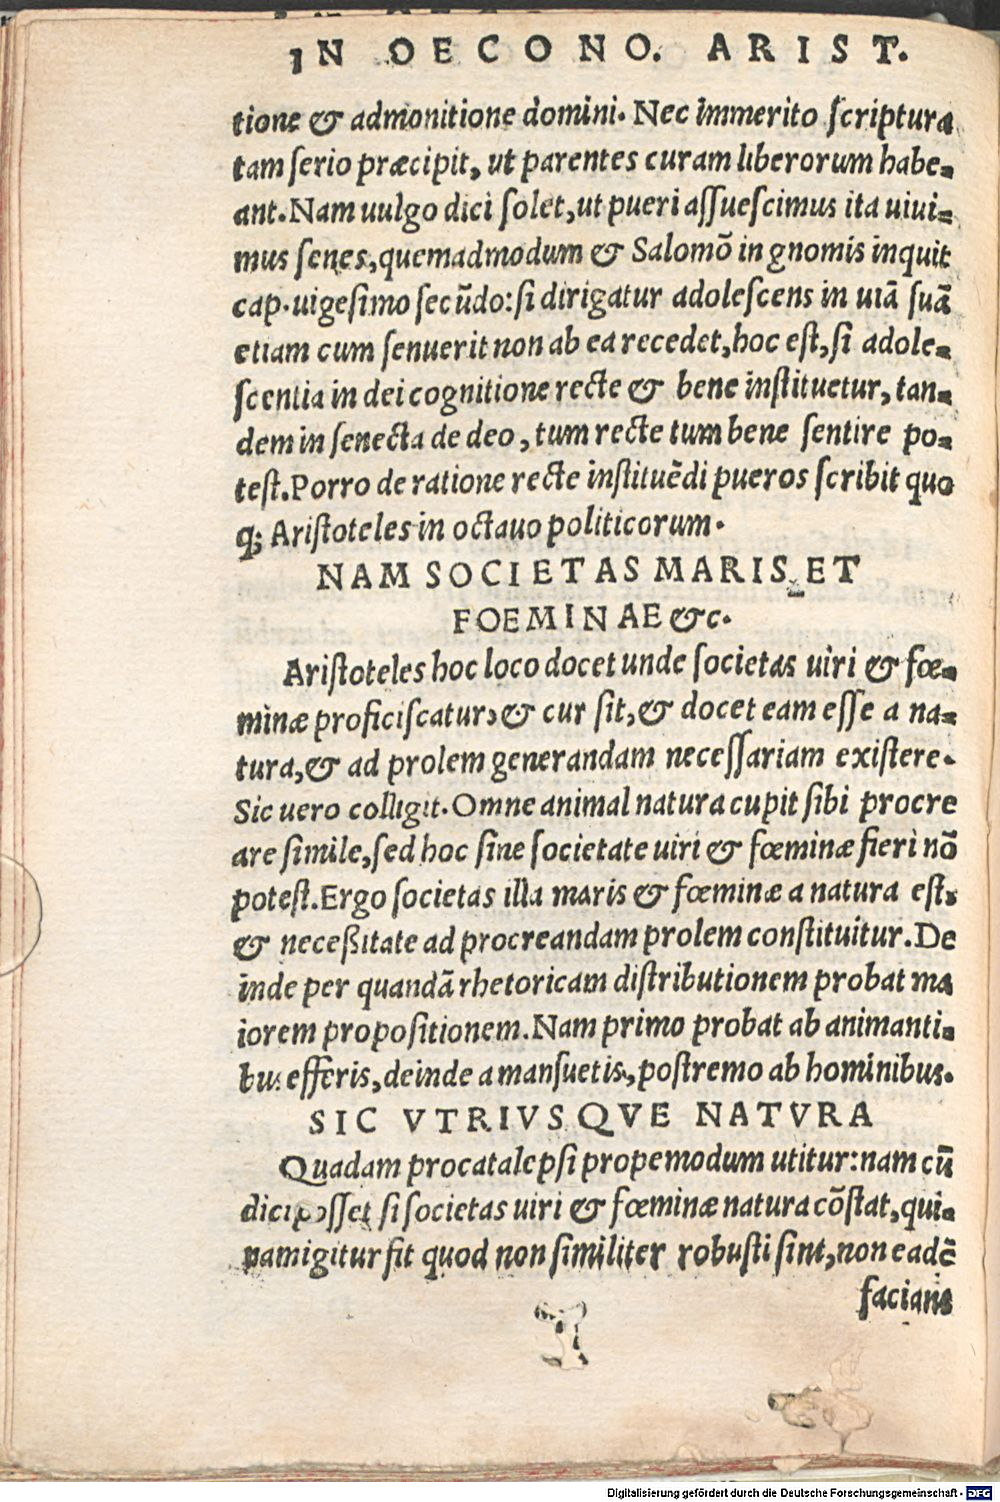 IN OECONO. ARIST.
tione & admonitione domini. Nec immerito ſcriptura
tam ſerio præcipit, ut parentes curam liberorum habe-
ant. Nam uulgo dici ſolet, ut pueri aſſueſcimus ita uiui-
mus ſenes, quemadmodum & Salomō in gnomis inquit
cap. uigeſimo ſecūdo: ſi dirigatur adoleſcens in uiā ſuā
etiam cum ſenuerit non ab ea recedet, hoc eſt, ſi adole-
ſcentia in dei cognitione recte & bene inſtituetur, tan-
dem in ſenecta de deo, tum recte tum bene ſentire po-
teſt. Porro de ratione recte inſtituēdi pueros ſcribit quo
q; Ariſtoteles in octauo politicorum.
NAM SOCIETAS MARIS ET
FOEMINAE &c.
Ariſtoteles hoc loco docet unde ſocietas uiri & fœ-
minæ proficiſcatur, & cur ſit, & docet eam eſſe a na-
tura, & ad prolem generandam neceſſariam exiſtere.
Sic uero colligit. Omne animal natura cupit ſibi procre
are ſimile, ſed hoc ſine ſocietate uiri & fœminæ fieri nō
poteſt. Ergo ſocietas illa maris & fœminæ a natura eſt,
& neceßitate ad procreandam prolem conſtituitur. De
inde per quandā rhetoricam diſtributionem probat ma
iorem propoſitionem. Nam primo probat ab animanti-
bus efferis, deinde a manſuetis, poſtremo ab hominibus.
SIC VTRIVSQVE NATVRA
Quadam procatalepſi propemodum utitur: nam cū
dici poſſet ſi ſocietas uiri & fœminæ natura cōſtat, qui-
nam igitur fit quod non ſimiliter robuſti ſint, non eadē
faciant
Digitalisierung gefördert durch die Deutsche Forschungsgemeinschaft - DFG